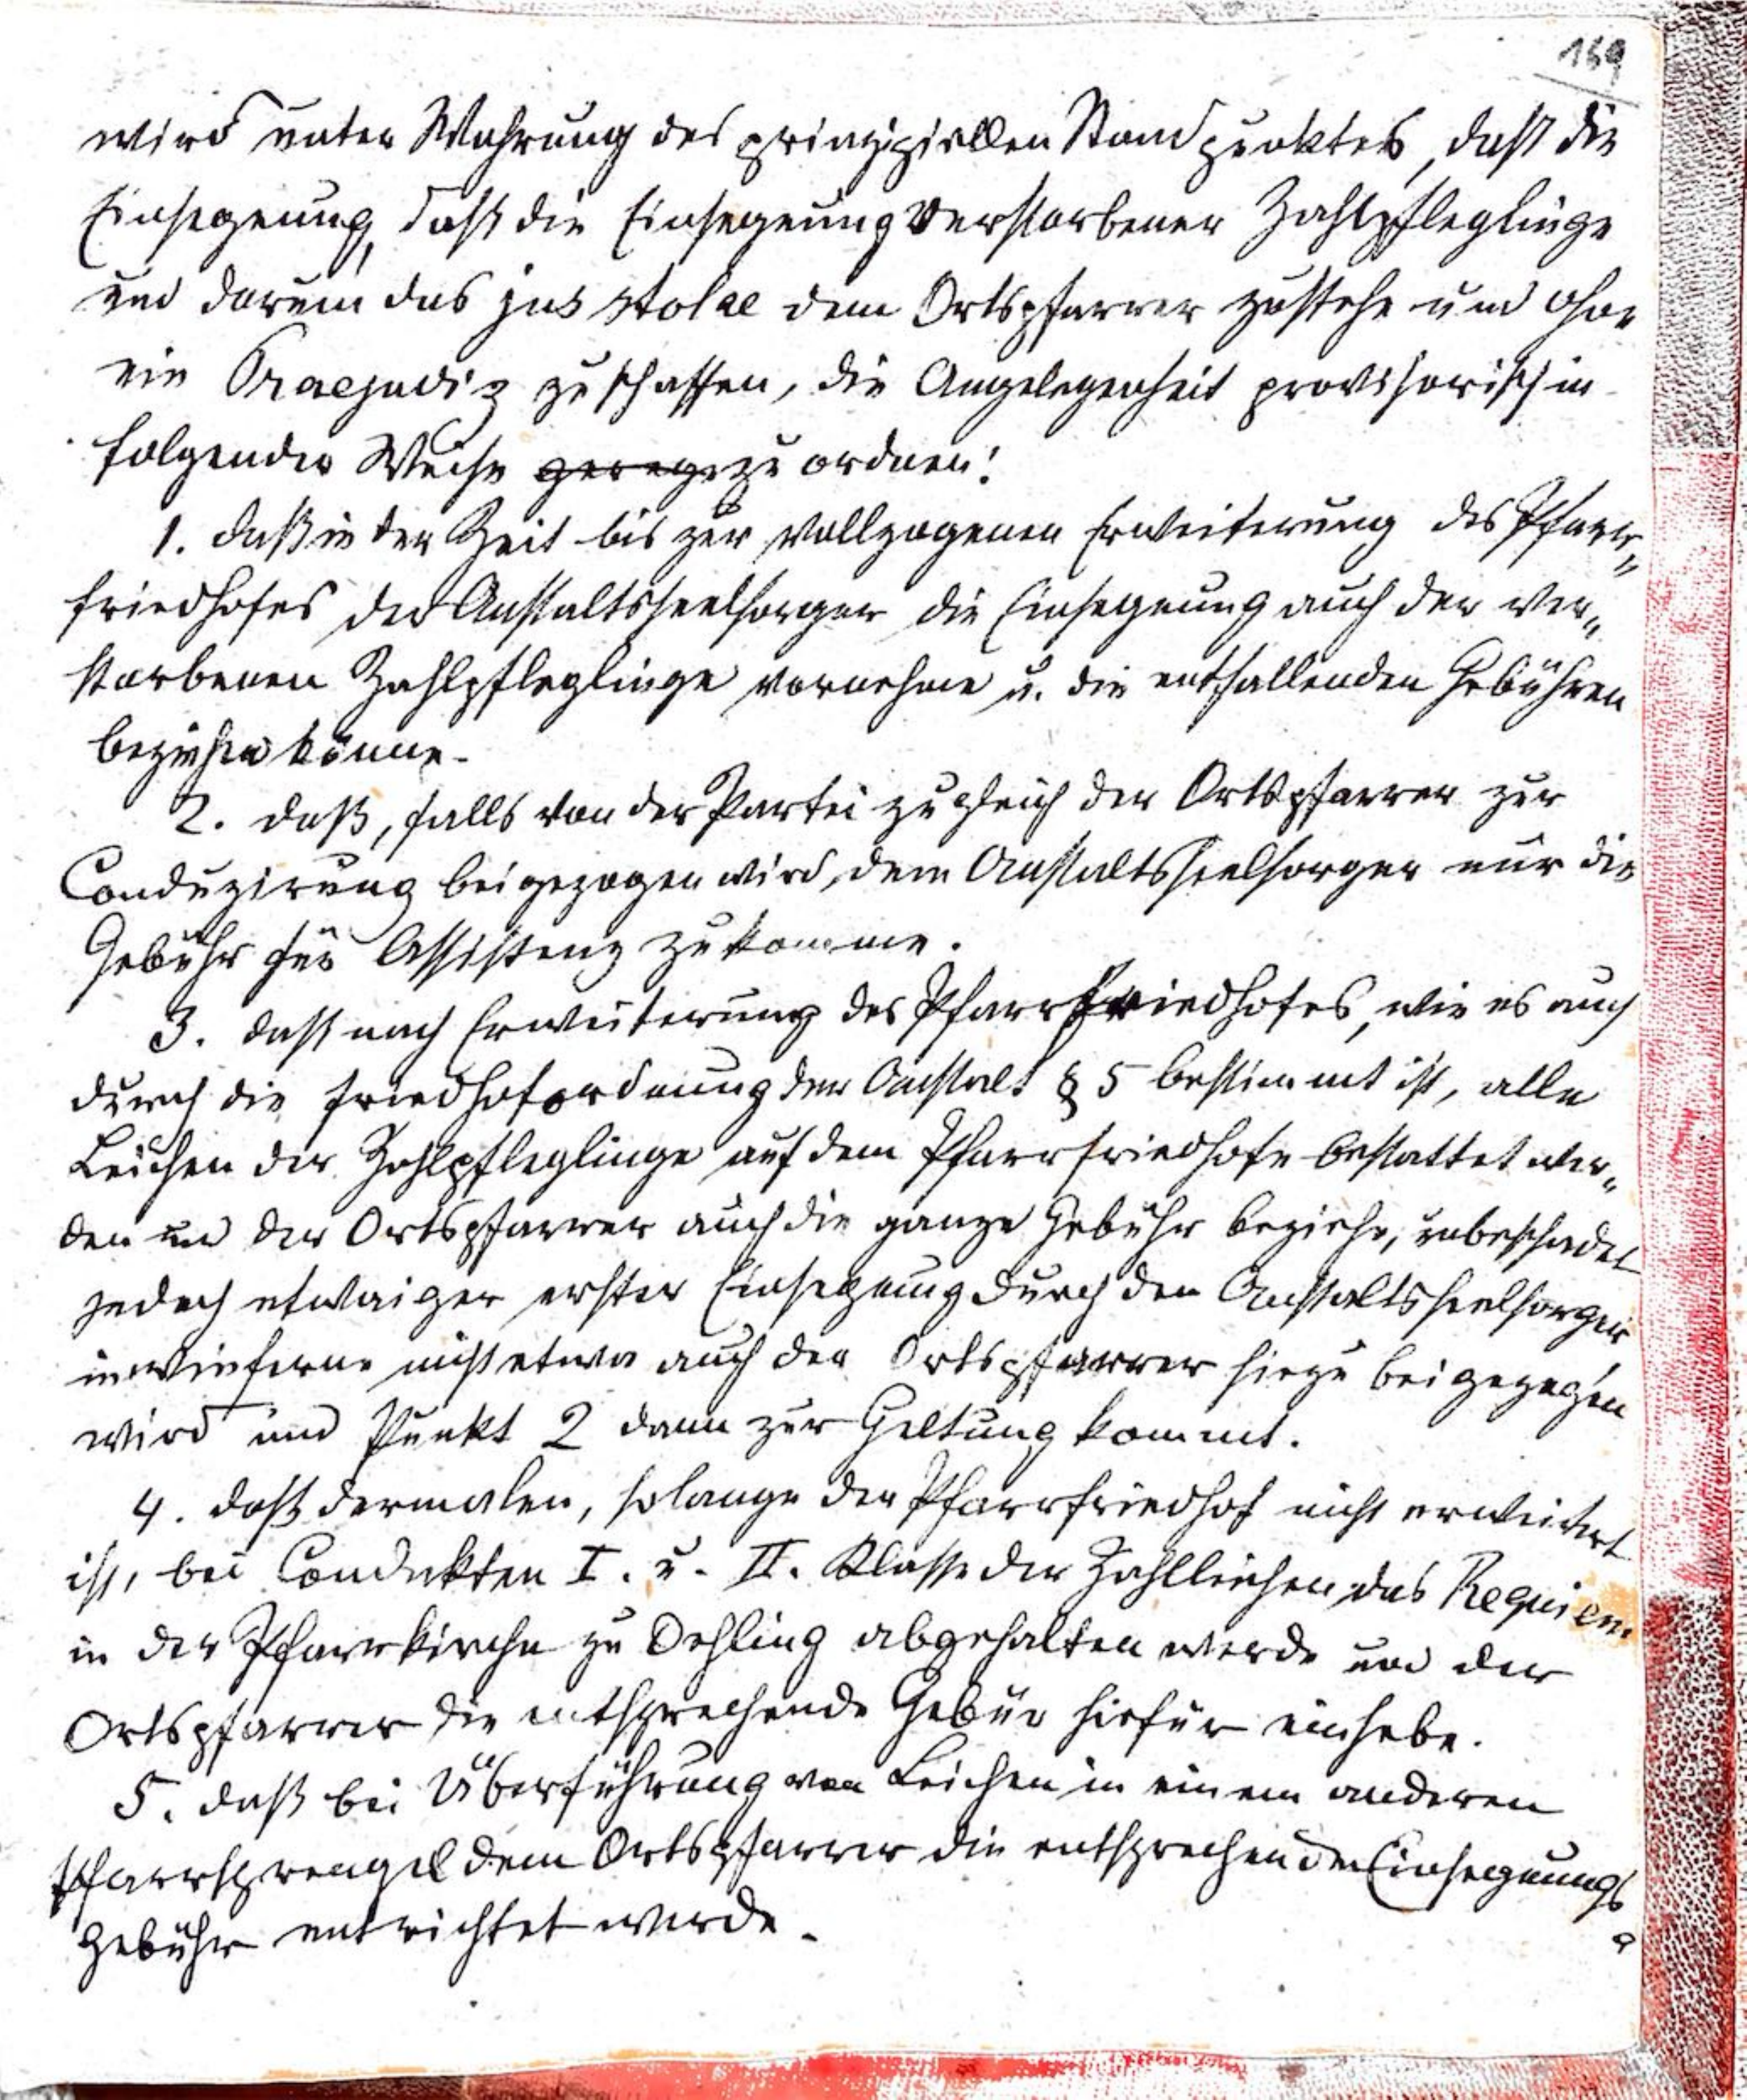 169
wird unter Wahrung des prinzipiellen Standpunktes, daß die
Einsegnung, daß die Einsegnung verstorbener Zahlpfleglinge
und darum das jus stolae dem Ortspfarrer zustehe und ohne
ein Praejudiz zu schaffen, die Angelegenheit provisorisch in
folgender Weise gerege zu ordnen:
1. daß in der Zeit bis zur vollzogenen Erweiterung des Pfarr„
friedhofes der Anstaltsseelsorger die Einsegnung auch der ver„
storbenen Zahlpfleglinge vornehme u. die entfallenden Gebühren
beziehen könne.
2. daß, falls von der Partei zugleich der Ortspfarrer zur
Conduzirung beigezogen wird, dem Anstaltsseelsorger nur die
Gebühr für Assistenz zukomme.
3. daß nach Erweiterung des Pfarrfriedhofes, wie es auch
durch die Friedhofordnung der Anstalt § 5 bestimmt ist, alle
Leichen der Zahlpfleglinge auf dem Pfarrfriedhofe bestattet wer„
den und der Ortspfarrer auch die ganze Gebühr beziehe, unbeschadet
jedoch etwaiger erster Einsegnung durch den Anstaltsseelsorger
inwieferne nicht etwa auch der Ortspfarrer hiezu beigezogen
wird und Punkt 2 dann zur Geltung kommt.
4. daß dermalen, solange der Pfarrfriedhof nicht erweitert
ist, bei Condukten I. u. II. Klasse der Zahlleichen das Requiem
in der Pfarrkirche zu Oehling abgehalten werde und der
Ortspfarrer die entsprechende Gebür hiefür einhebe.
5. daß bei Überführung von Leichen in einem anderen
Pfarrsprengel dem Ortspfarrer die entsprechende Einsegnungs
gebühr entrichtet werde.